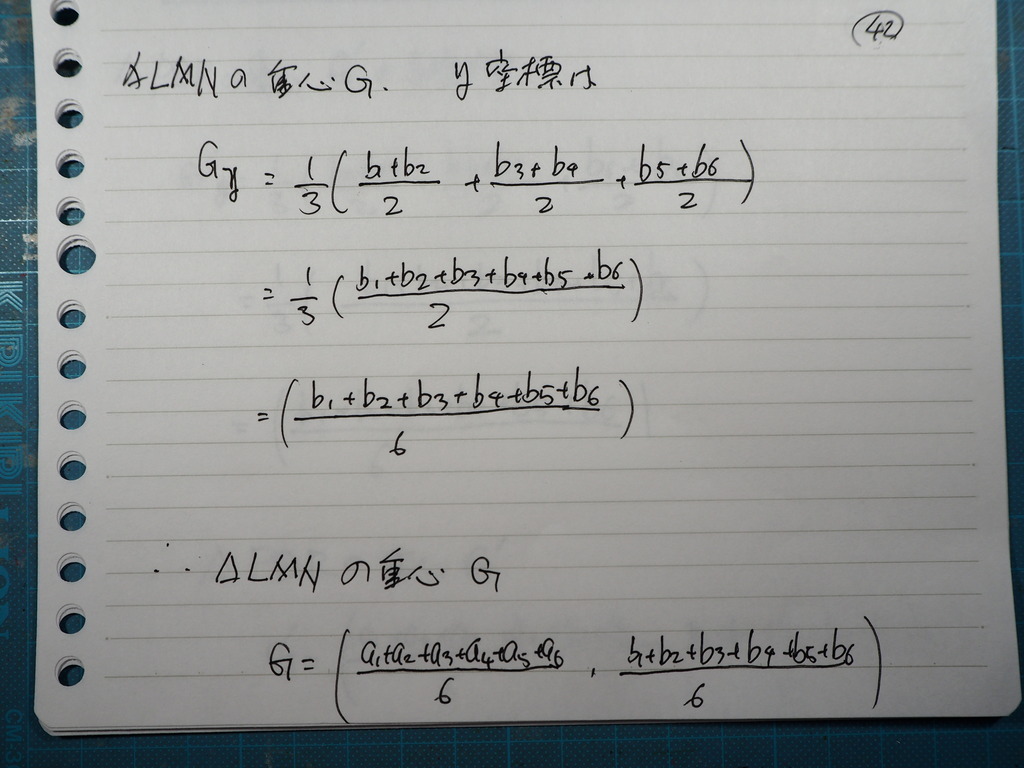 42
△LMNの重心G. y座標は
Gy = 1/3 ( (b1+b2)/2 + (b3+b4)/2 + (b5+b6)/2 )
= 1/3 ( (b1+b2+b3+b4+b5+b6)/2 )
= ( (b1+b2+b3+b4+b5+b6)/6 )
∴ △LMNの重心 G
G = ( (a1+a2+a3+a4+a5+a6)/6 , (b1+b2+b3+b4+b5+b6)/6 )